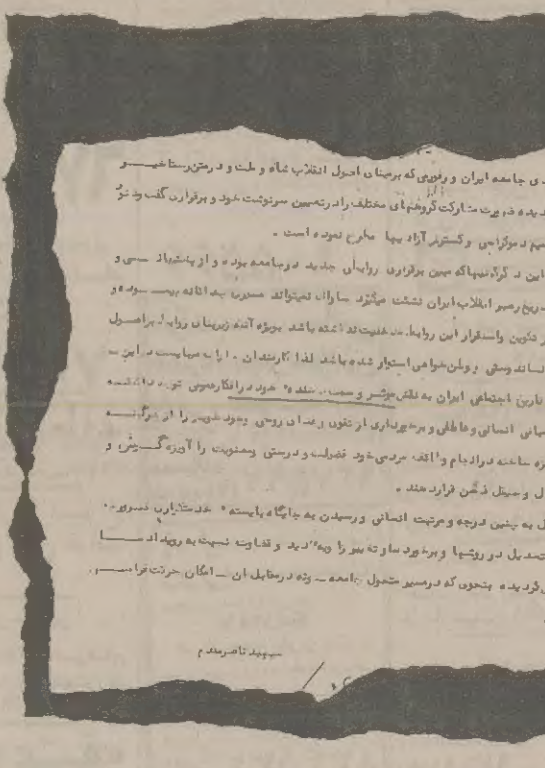 ی جامعه ایران و رفورمی که برمبنای اصول انقلاب شاه و ملت و در متن رستاخیز و
دیده ضرورت مشارکت گروههای مختلف را در تعیین سرنوشت خود و برقراری گفت و شنود
دموکراسی و گسترش آزادیها مطرح نموده است .
این دگرگونیها که مبین برقراری روابطی جدید در جامعه بوده و از پشتیبانی و
رهبر انقلاب ایران نشئت میگیرد ساواک نمیتواند بیگانه بوده و
تکوین واستقرار این روابط نداشته باشد بویژه آنکه زیربنای روابط براصول
انساندوستی و وطن‌خواهی استوار شده باشد لذا کارمندان در این
تاریخ اجتماعی ایران به نقش موثر و خود در افکار عمومی توجه داشته
مبانی انسانی و عاطفی و برخورداری از تقوی و روحی وجود خویش را از هرگونه
ساخته در انجام وظائف مردمی خود فضیلت و درستی و معنویت را آویزه گوش و
ذهن قرار دهند .
به چنین درجه و مرتبت انسانی و رسیدن به جایگاه بایسته خدمتگزاری
تعدیل در روشها و برخوردها و تغییر زاویه دید و قضاوت نسبت به رویدادها
گردیده بنحوی که در مسیر متحول جامعه ـ و نه در مقابل آن ـ امکان حرکت
سپهبد ناصر مقدم